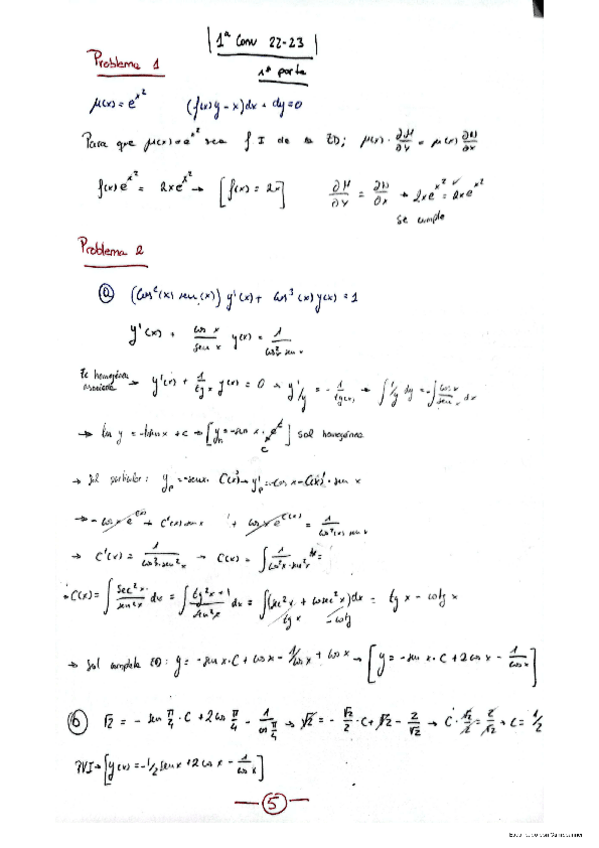 1ª Conv 22-23
1ª parte
Problema 1
μ(x) = e^{x²}   (f(x)y - x)dx + dy = 0
Para que μ(x) = e^{x²} sea f.I de la ED; μ(x) · ∂M/∂y = μ(x) ∂N/∂x
f(x)e^{x²} = 2xe^{x²} → [f(x) = 2x]   ∂M/∂y = ∂N/∂x → 2xe^{x²} = 2xe^{x²} ✓
se cumple
Problema 2
ⓐ (cos²(x) sen(x)) y'(x) + cos³(x) y(x) = 1
y'(x) + cos x/sen x y(x) = 1/cos² x sen x
Ec homogénea asociada → y'(x) + 1/tg x y(x) = 0 → y'/y = - 1/tg(x) → ∫ 1/y dy = -∫ cos x/sen x dx
→ y = -sen x · C sol homogénea
→ Sol particular: y_p = -sen x · C(x) → y'_p = -cos x - C(x)' · sen x
→ C'(x) = → C(x) = ∫
C(x) = ∫ sec² x/sen² x dx = ∫ tg² x + 1/sen² x dx = ∫ (sec² x + cosec² x) dx = tg x - cotg x
tg x   -cotg
→ Sol completa ED: y = -sen x · C + cos x - 1/cos x + cos x → [y = -sen x · C + 2 cos x - 1/cos x]
ⓑ √2 = - sen π/4 · C + 2 cos π/4 - 1/cos π/4 → √2 = - √2/2 C + √2 - 2/√2 → C · √2/2 = 2/√2 → C = 1/2
PVI → [y(x) = -1/2 sen x + 2 cos x - 1/cos x]
5